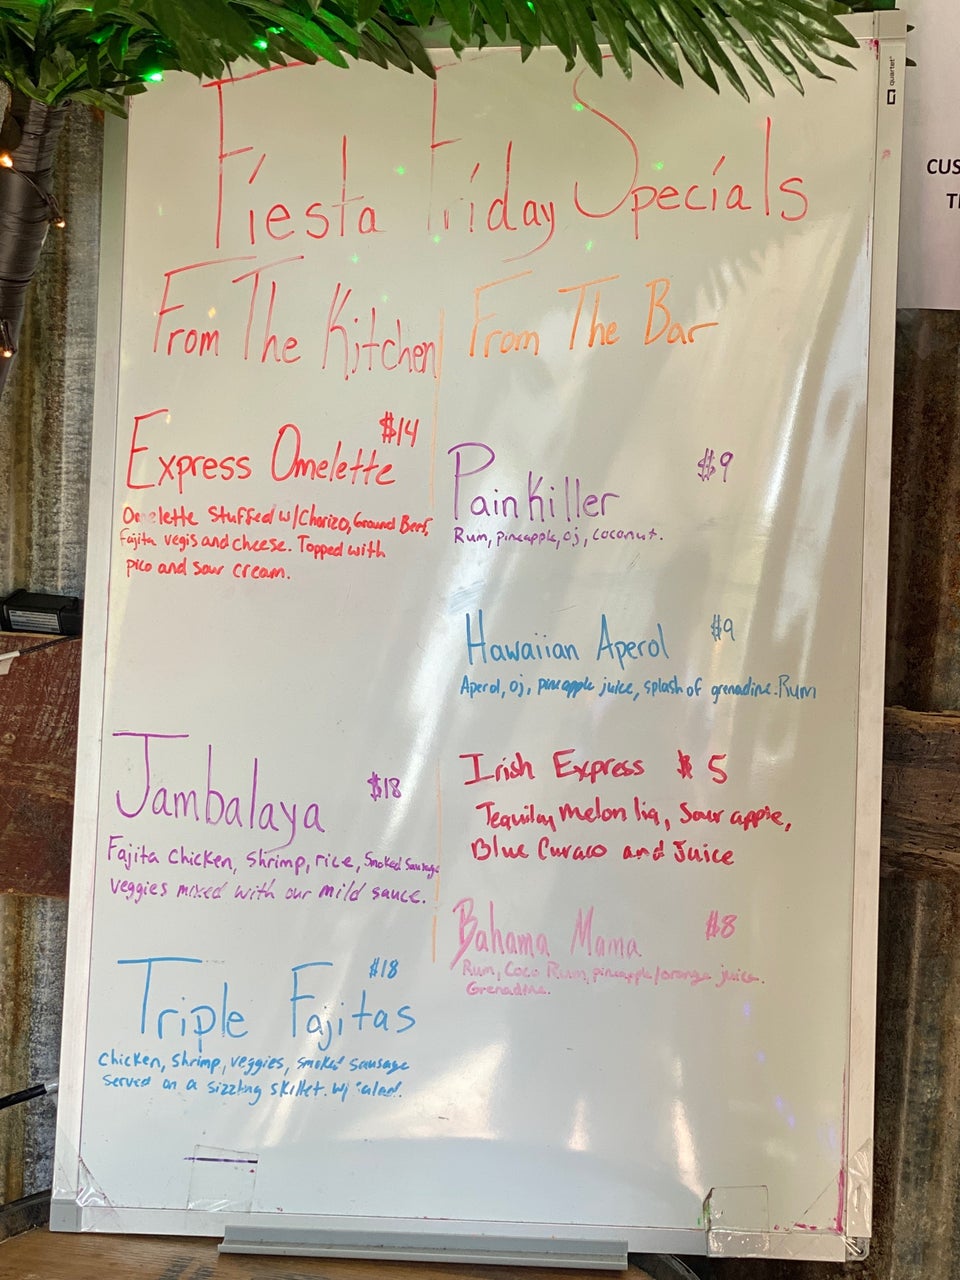 Fiesta Friday Specials
From The Kitchen
Express Omelette $14
Omelette Stuffed w/Chorizo, Ground Beef,
Fajita vegis and cheese. Topped with
pico and sour cream.
Jambalaya $18
Fajita chicken, shrimp, rice, smoked sausage
veggies mixed with our mild sauce.
Triple Fajitas $18
chicken, shrimp, veggies, smoked sausage
served on a sizzling skillet. w/ salad.
From The Bar
Pain Killer $9
Rum, pineapple, oj, coconut.
Hawaiian Aperol $9
Aperol, oj, pineapple juice, splash of grenadine. Rum
Irish Express $5
Tequila, melon liq, Sour apple,
Blue Curaco and Juice
Bahama Mama $8
Rum, Coco Rum, pineapple/orange juice.
Grenadine.
quartet
CUS